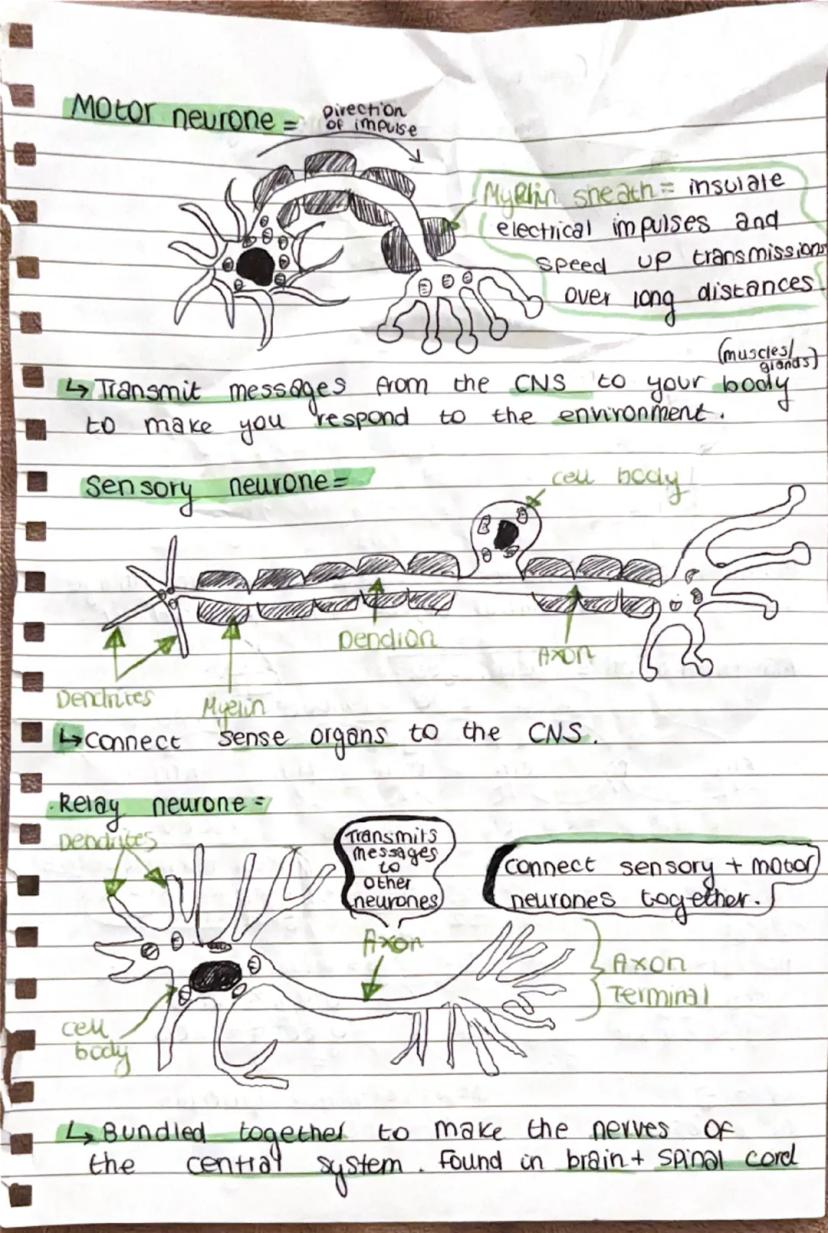 Motor neurone =
Direction
of impulse
Myelin sheath = insulate
electrical impulses and
speed up transmissions
over long distances.
(muscles/
glands)
↳ Transmit messages from the CNS to your body
to make you respond to the environment.
Sensory neurone =
cell body
Dendion
Axon
Dendrites
Myelin
↳ Connect sense organs to the CNS.
Relay neurone =
Dendrites
Transmits
messages
to
other
neurones
connect sensory + motor
neurones together.
Axon
Axon
Terminal
cell
body
↳ Bundled together to make the nerves of
the central system. Found in brain + spinal cord